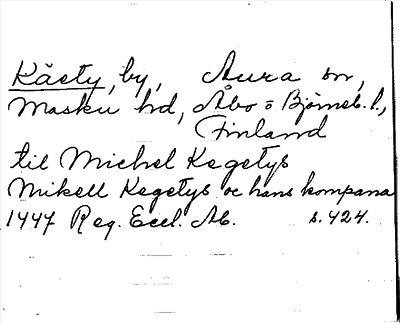 Käety, by, Aura sn,
Masku hd, Åbo o Björneb. l.,
Finland
til Michel Kegetys
Mikell Kegetys oc hans kompana
1447 Reg. Eccl. Ab. s. 424.